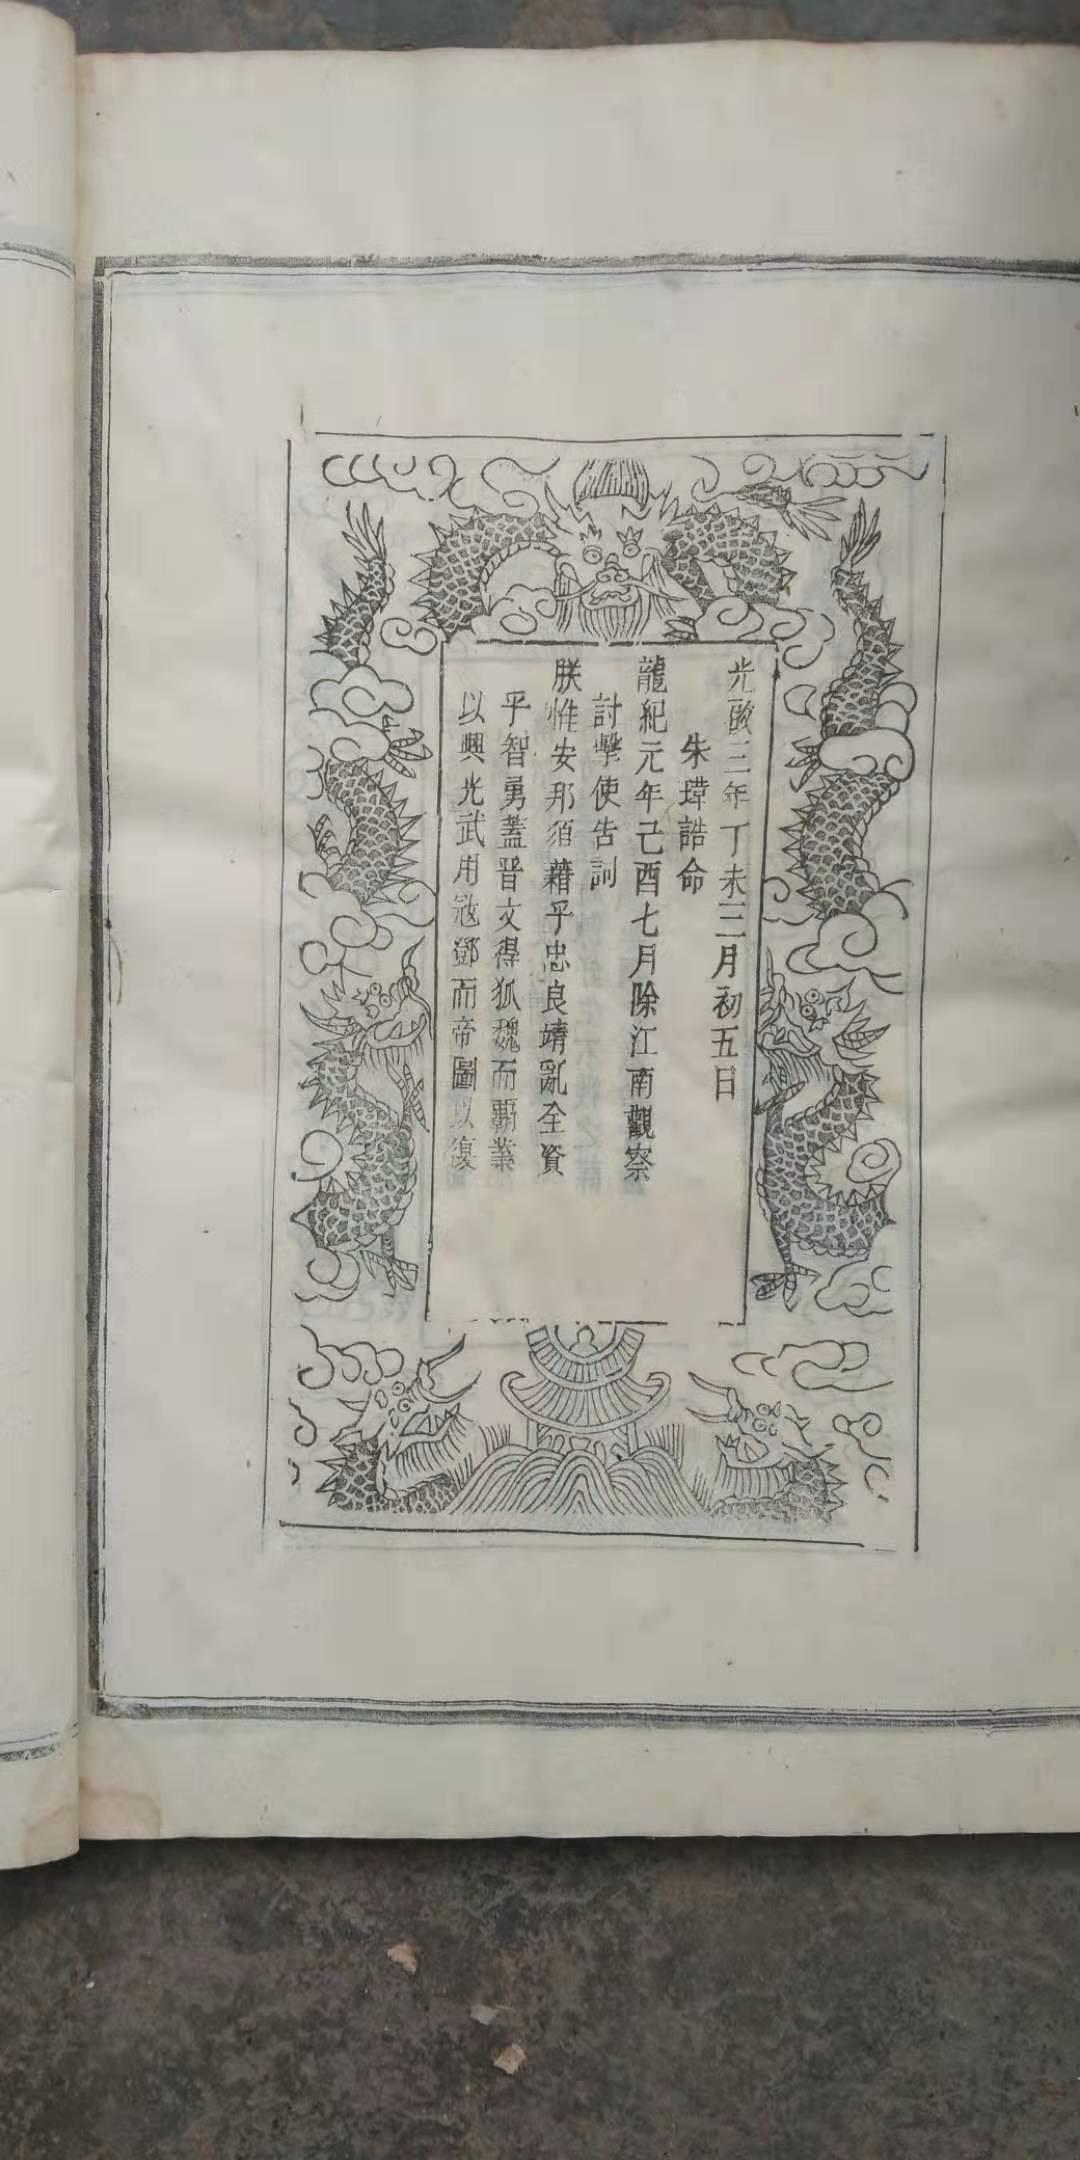 光啟三年丁未三月初五日
朱瑋誥命
龍紀元年己酉七月除江南觀察
討擊使告詞
朕惟安那須藉乎忠良靖亂全資
乎智勇蓋晋文得狐魏而覇業
以興光武用冦鄧而帝圖以復